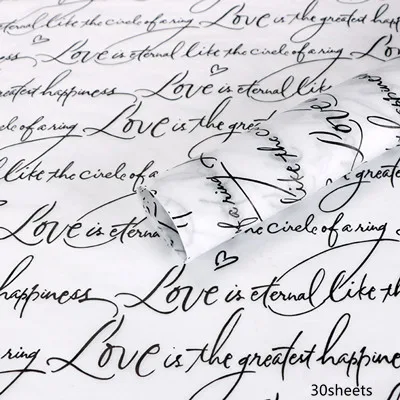 eternal like the circle of a ring Love is the greatest happ
ness Love is eternal like the circle of a ring Lov
greatest happiness Love is eternal lik
cle of a ring Love is the gre
l like the circle of a
Love is eterna
a ring
like the
love
happiness
greatest
he circle of a ring
happiness Love is eternal like th
ring Love is the greatest happine
30sheets